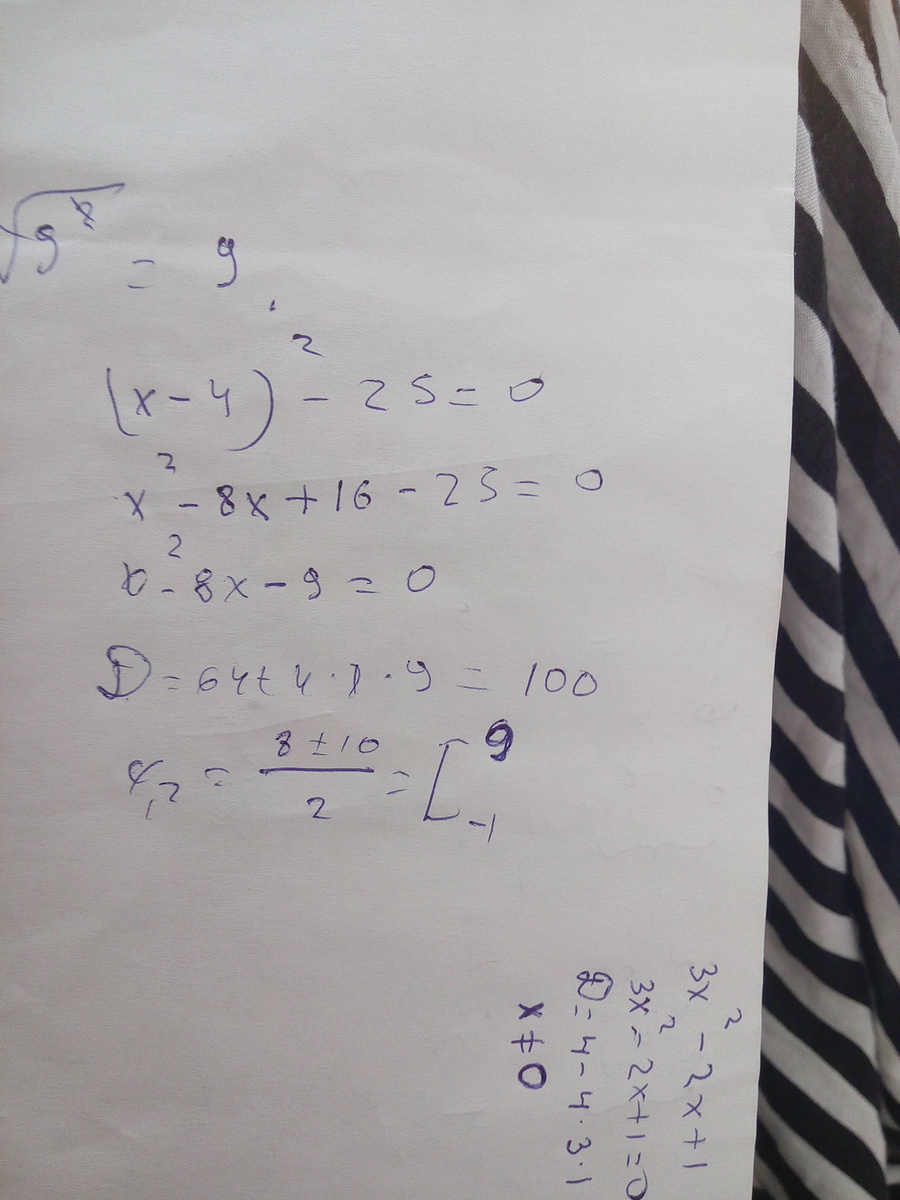 √9² = 9
(x-4)² - 25 = 0
x² - 8x + 16 - 25 = 0
x² - 8x - 9 = 0
D = 64 + 4·1·9 = 100
x,₂ = (8 ± 10)/2 = [9 -1
3x² - 2x + 1
3x² - 2x + 1 = 0
D = 4 - 4·3·1
x ≠ 0